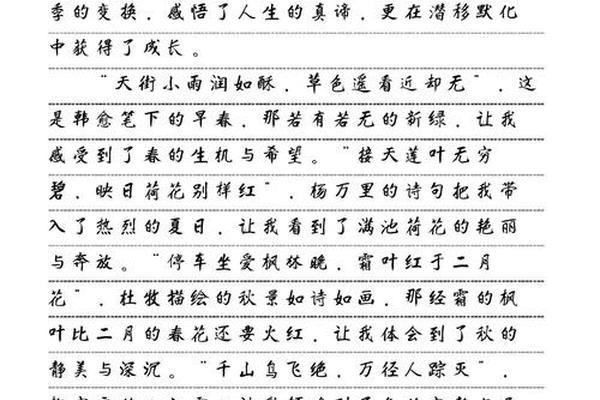 季的变换，感悟了人生的真谛，更在潜移默化
中获得了成长。
“天街小雨润如酥，草色遥看近却无”，这
是韩愈笔下的早春，那若有若无的新绿，让我
感受到了春的生机与希望。“接天莲叶无穷
碧，映日荷花别样红”，杨万里的诗句把我带
入了热烈的夏日，让我看到了满池荷花的艳丽
与奔放。“停车坐爱枫林晚，霜叶红于二月
花”，杜牧描绘的秋景如诗如画，那经霜的枫
叶比二月的春花还要火红，让我体会到了秋的
静美与深沉。“千山鸟飞绝，万径人踪灭”，